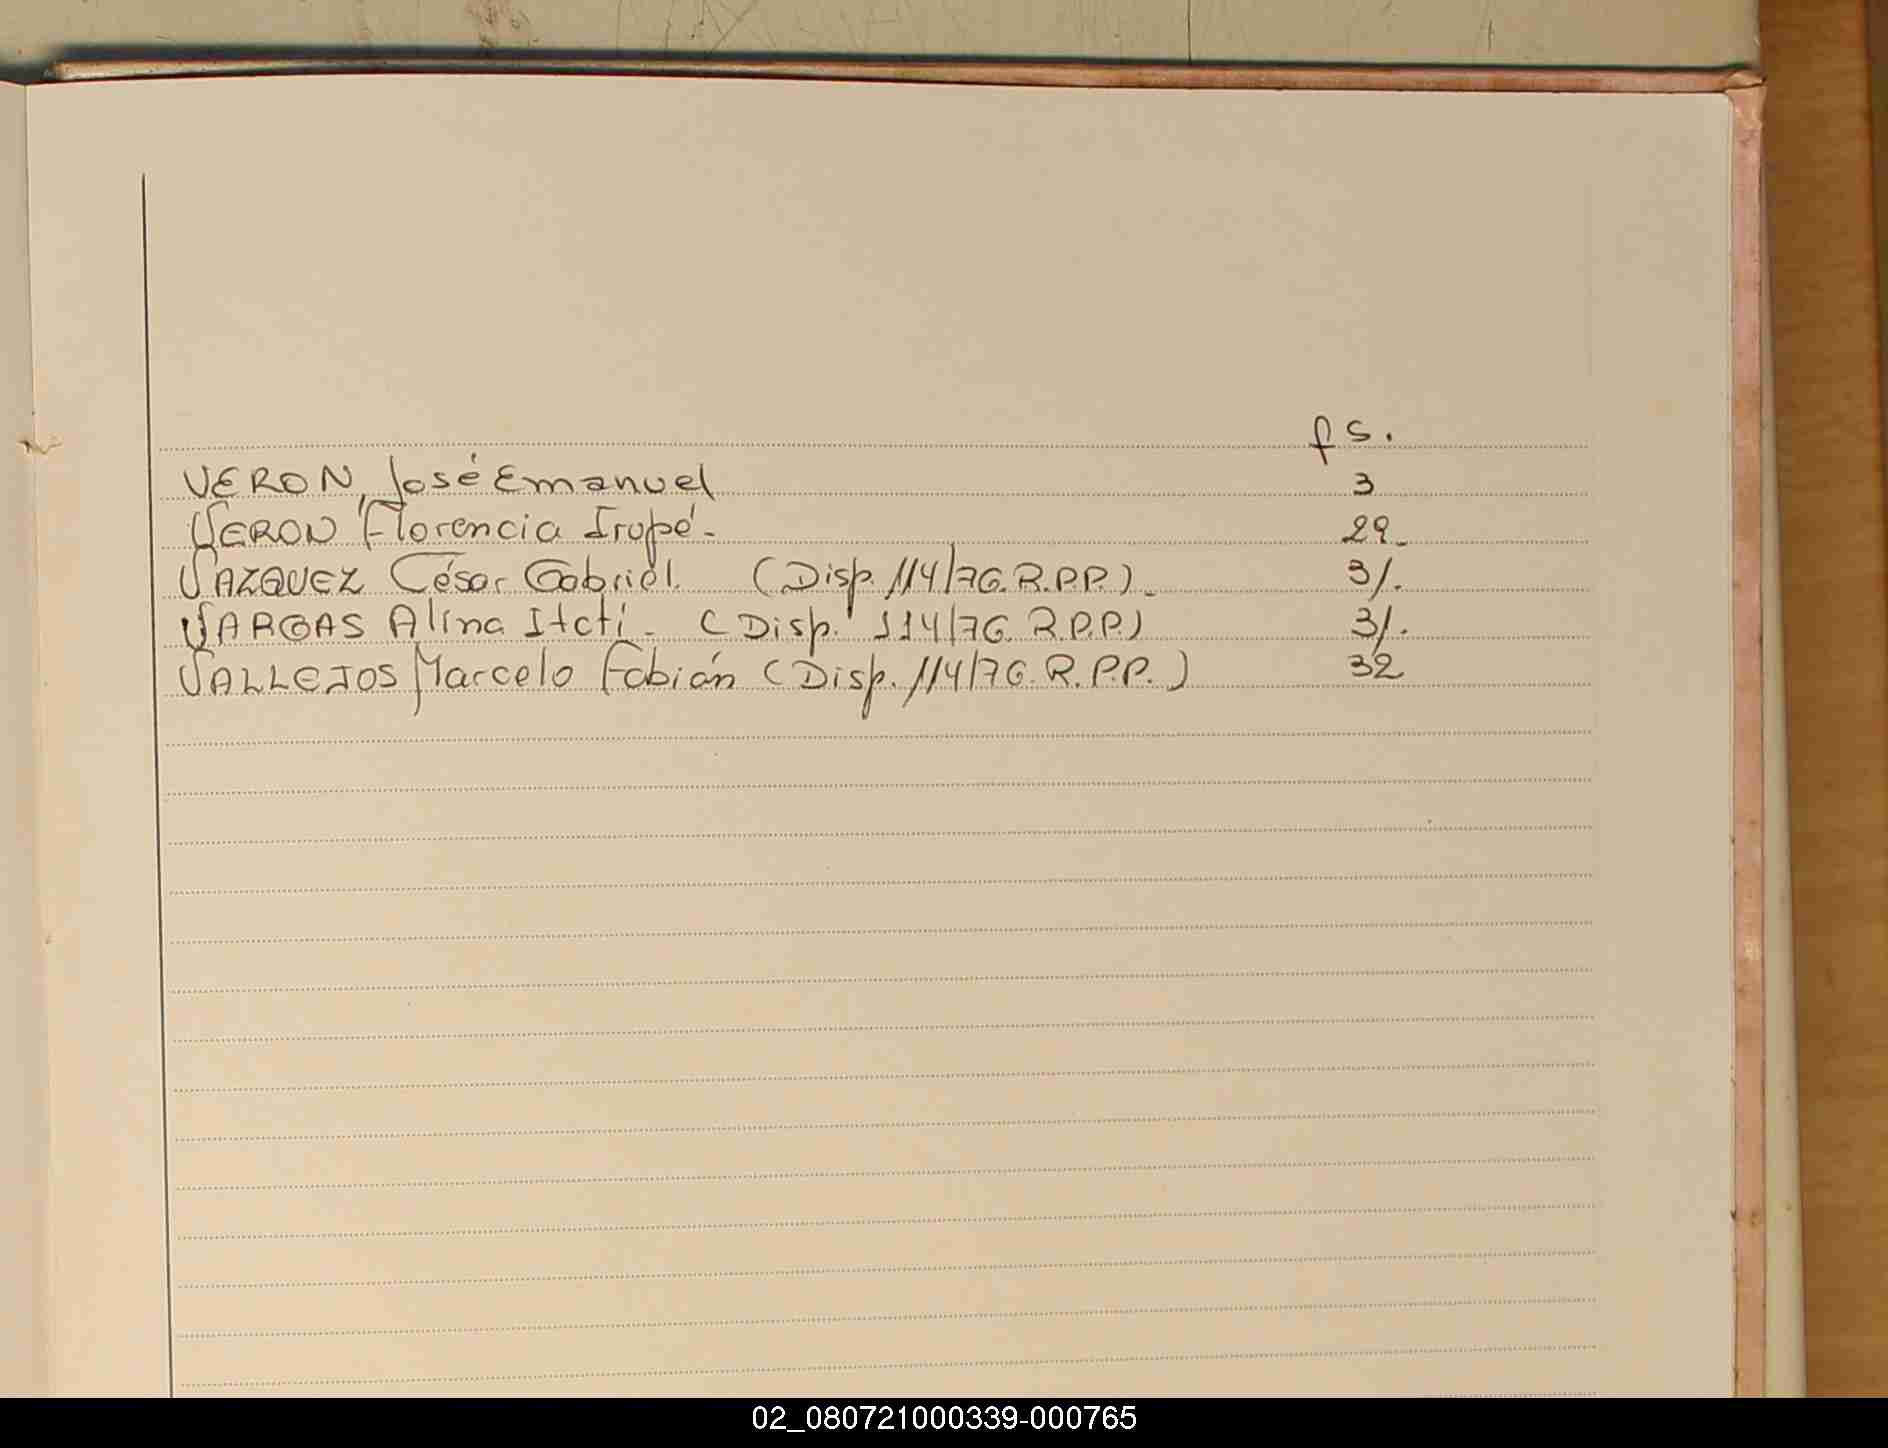 fs.
VERON, José Emanuel 3
VERON Florencia Irupé.- 29-
VAZQUEZ César Gabriel. (Disp. 114/76.R.P.P.)- 31.
VARGAS Alina Itatí- (Disp. 114/76. R.P.P.) 31.
VALLEJOS Marcelo Fabián (Disp. 114/76. R.P.P.) 32
02_080721000339-000765